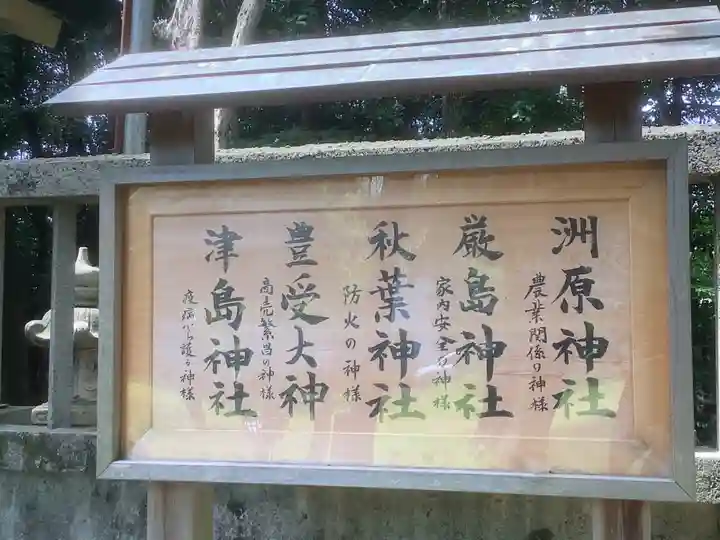 洲原神社
農業関係の神様
厳島神社
家内安全の神様
秋葉神社
防火の神様
豊受大神
商売繁昌の神様
津島神社
疫病から護る神様